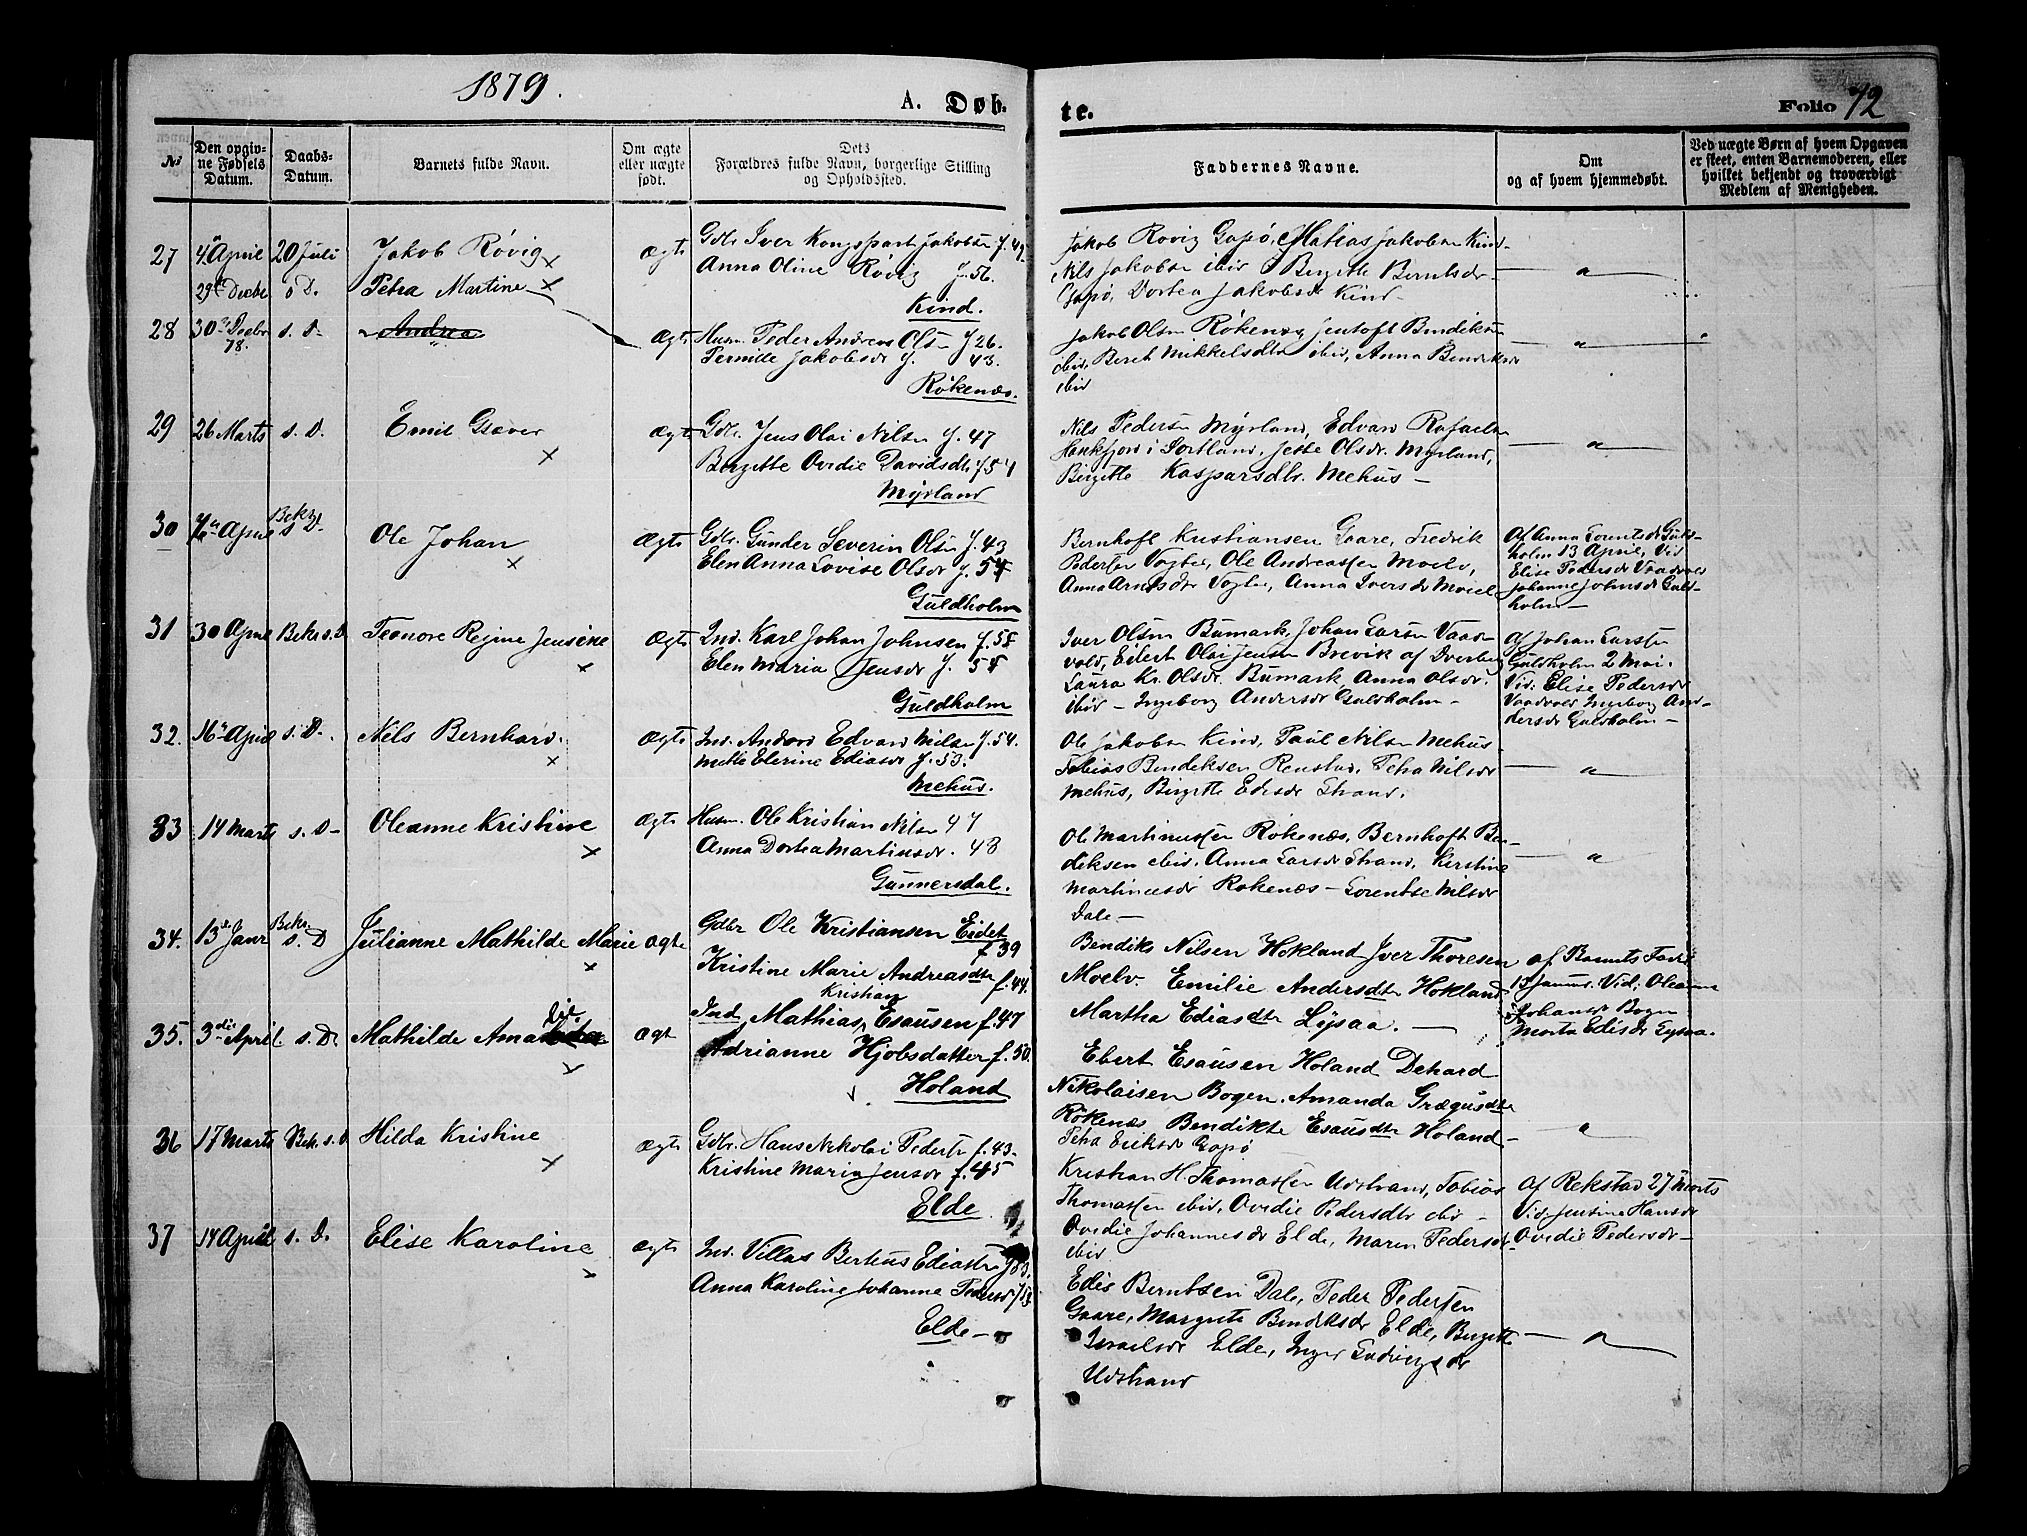 1879.
A. Døb-
te.
Folio 72
No
Den opgivne Fødsels Datum.
Daabs-Datum.
Barnets fulde Navn.
Om ægte eller uægte født.
Dets Forældres fulde Navn, borgerlige Stilling og Opholdssted.
Faddernes Navne.
Om og af hvem hjemmedøbt.
Ved uægte Børn af hvem Opgaven er skeet, enten Barnemoderen, eller hvilket bekjendt og troværdigt Medlem af Menigheden.
27 4 April 20 Juli Jakob Røvig ægte
Gdbr. Iver Kongspart Jakobsen f. 49
Anna Oline Røvig f. 56.
Kind.
Jakob Røvig Gapø, Matias Jakobsen Kind
Nils Jakobsen ibid Birgitte Berntsdr
Gapø, Dortea Jakobsdr Kind
29 Decbr s D. Petra Martine
28 30 Decbr 78. s. D. Andrea ægte
Husm. Peder Andreas Olsen f 26.
Pernille Jakobsdr f. 43.
Røkenæs.
Jakob Olsen Røkenæs, Jentoft Bendiksen
ibid, Beret Mikkelsdtr ibid, Anna Bendiksdr
ibid
29 26 Marts s. D. Emil Gæver ægte
Gdbr. Jens Olai Nilsen f. 47
Birgitte Ovidie Davidsdtr f 54
Myrland
Nils Pedersen Myrland, Edvard Rafaelsen
i Sortland, Jette Olsdr. Myrland,
Birgitte Kaspersdtr. Mehus
30 April Bekr s D. Ole Johan ægte
Gdbr. Gunder Severin Olsen f. 43
Elen Anna Lovise Olsdr f. 54
Guldholm
Bernhoft Kristiansen Gaare, Fredrik
Pedersen Vogbe, Ole Andreassen Moelv,
Anna Arnesdr Vogbe, Anna Iversdr Moelv
Af Anna Lorentsdr Guld-
holm 13 April, Vid
Elise Pedersdr
Johanne Johnsdr Guld-
holm
31 30 April Bekr s. D. Leonore Regine Jensine ægte
Ind. Karl Johan Johnsen f. 58
Elen Maria Jensdr f. 55
Guldholm
Iver Olsen Bumark, Johan Larsen Vaad-
vold, Eilert Olai Jensen Brevik af Dverberg
Laura Kr. Olsdr. Bumark, Anna Olsdr.
ibid - Ingeborg Andersdr Guldholm
Af Johan Larssen
Guldholm 2 Mai.
Vid. Elise Pedersdr
Vaadvold Ingeborg An-
dersdr Guldholm
32. 16 April s. D. Nils Bernhard. ægte
Ind. Anders Edvard Nilsen f. 54.
Mette Elerine Ediasdr f. 53.
Mehus.
Ole Jakobsen Kind, Paul Nilsen Mehus
Tobias Bendiksen Renstad, Petra Nilsdr
Mehus, Birgitte Edisdr Strand.
33 14 Marts s. D. Oleanne Kristine ægte
Husm. Ole Kristian Nilsen 47
Anna Dortea Martinsdr. 48
Gunnersdal.
Ole Martinussen Røkenæs, Bernhoft Ben-
diksen ibid. Anna Larsdr Strand, Kerstine
Martinusdr Røkenæs - Lorentse Nilsdr
Dale
34. 13 Janr Bekr. s. D Julianne Mathilde Marie ægte
Gdbr Ole Kristiansen Eidet f 39
Kristine Marie Andreasdtr f. 44.
Bendiks Nilsen Hokland Iver Thoresen
Moelv. Emilie Andersdtr Hokland
Martha Ediasdtr Lysaa.
af Barnets Fader
13 Januar. Vid. Oleanna
Johansdr Bogen
Marta Edisdr Lysaa.
35. 3die April. s. D. Mathilde Amadie ægt
Kristian
Ind. Mathias Esausen f. 47
Adrianne Hjobsdatter f. 50.
Holand
Ebert Esausen Holand Dehard
Nikolaisen Bogen. Amanda Grægusdtr
Røkenæs Bendikte Esausdtr Holand
Petra Eriksdr Gapø
36 17 Marts Bekr. s. D Hilda Kristine ægte
Gdbr. Hans Nikolai Pedersen f. 43
Kristine Maria Jensdr f. 45
Elde
Kristian H. Thomassen Udstrand, Tobias
Thomassen ibid, Ovidie Pedersdtr ibid
Ovidie Johannesdr Elde, Maren Pedersdr
ibid
Af Rekstad 27 Marts
Vid. Jensine Hansdr
Ovidie Pedersdr
37 14 April s. D. Elise Karoline ægte
Ind. Villas Berteus Ediassen
Anna Karoline Johanne Pedersdr
Elde
Edis Berntsen Dale, Peder Pedersen
Gaare, Margrete Bendiksdr Elde, Birgitte
Israelsdr Elde, Inger Ludvigsdr
Udstrand